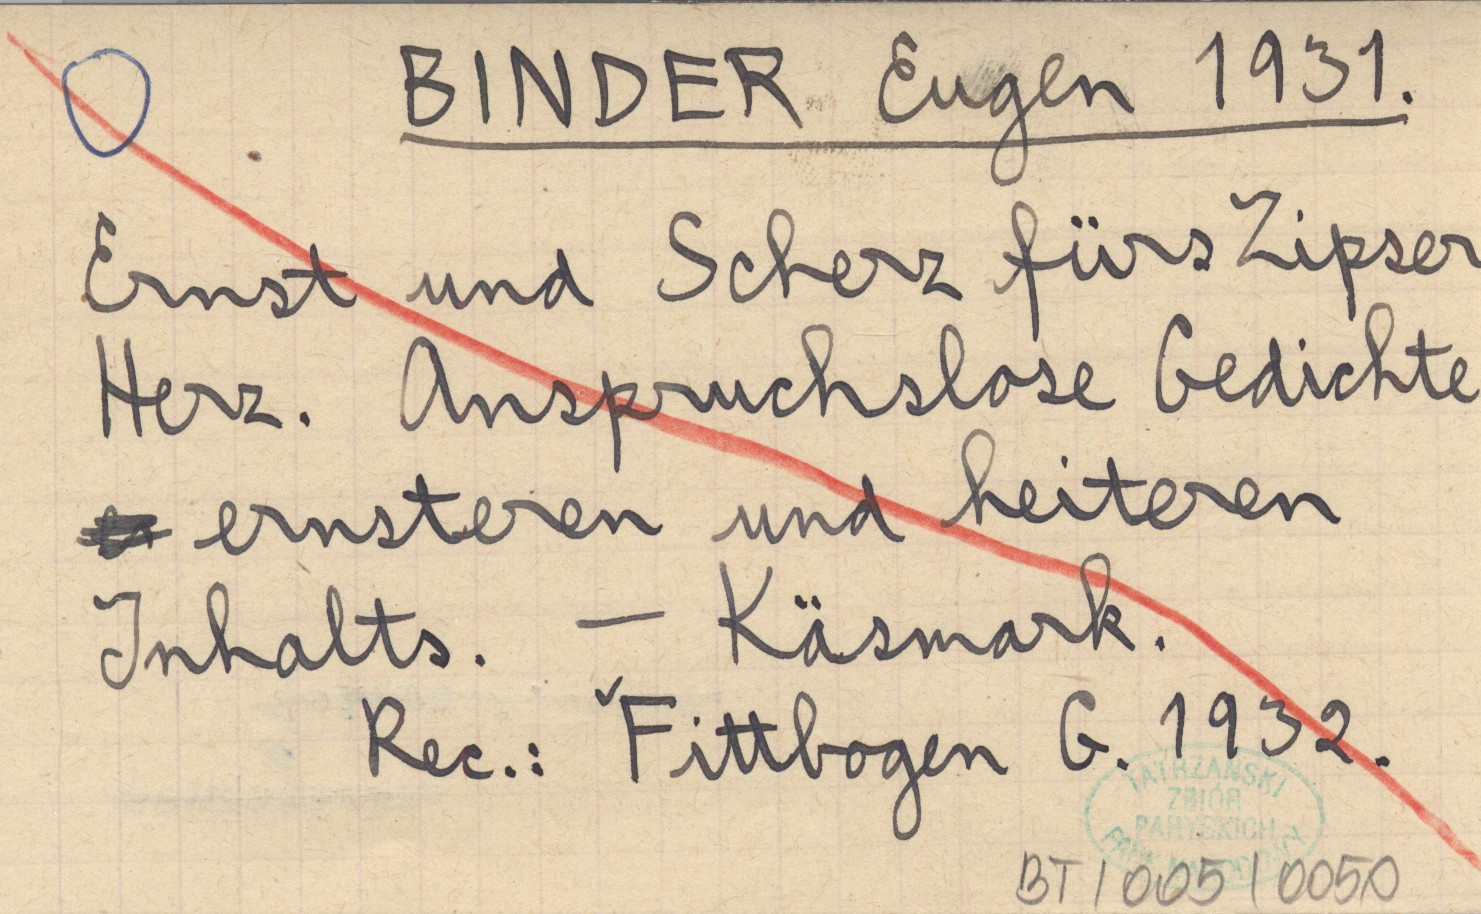 BINDER Eugen 1931.
Ernst und Scherz fürs Zipser
Herz. Anspruchslose Gedichte
ernsteren und heiteren
Inhalts. — Käsmark.
Rec.: Fittbogen G. 1932.
TATRZAŃSKI
ZBIÓR
PARYSKICH
BT/005/0050